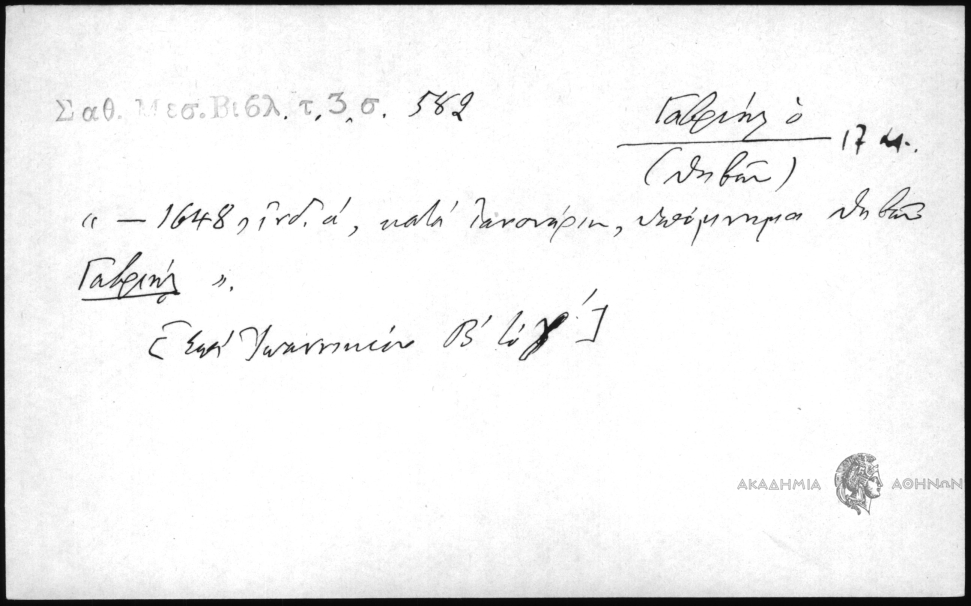 Σαθ. Μεσ. Βιβλ. τ. 3 σ. 582
Γαβριήλ ὁ
(Θηβῶν)
17 αι.
« — 1648, ἰνδ. ά, κατά Ἰανουάριον, ὑπόμνημα Θηβῶν
Γαβριήλ ».
[ἐπί Ἰωαννικίου Β΄ τό β΄]
ΑΚΑΔΗΜΙΑ ΑΘΗΝΩΝ